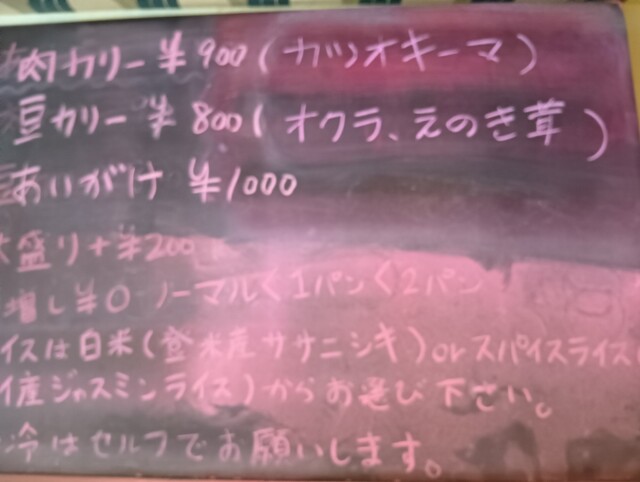 肉カリー ¥900 (カツオキーマ)
豆カリー ¥800 (オクラ、えのき茸)
あいがけ ¥1000
大盛り+¥200
増し¥0 ノーマル<1パン<2パン
イスは白米(登米産ササニシキ)orスパイスライス(
イ産ジャスミンライス)からお選び下さい。
冷はセルフでお願いします。